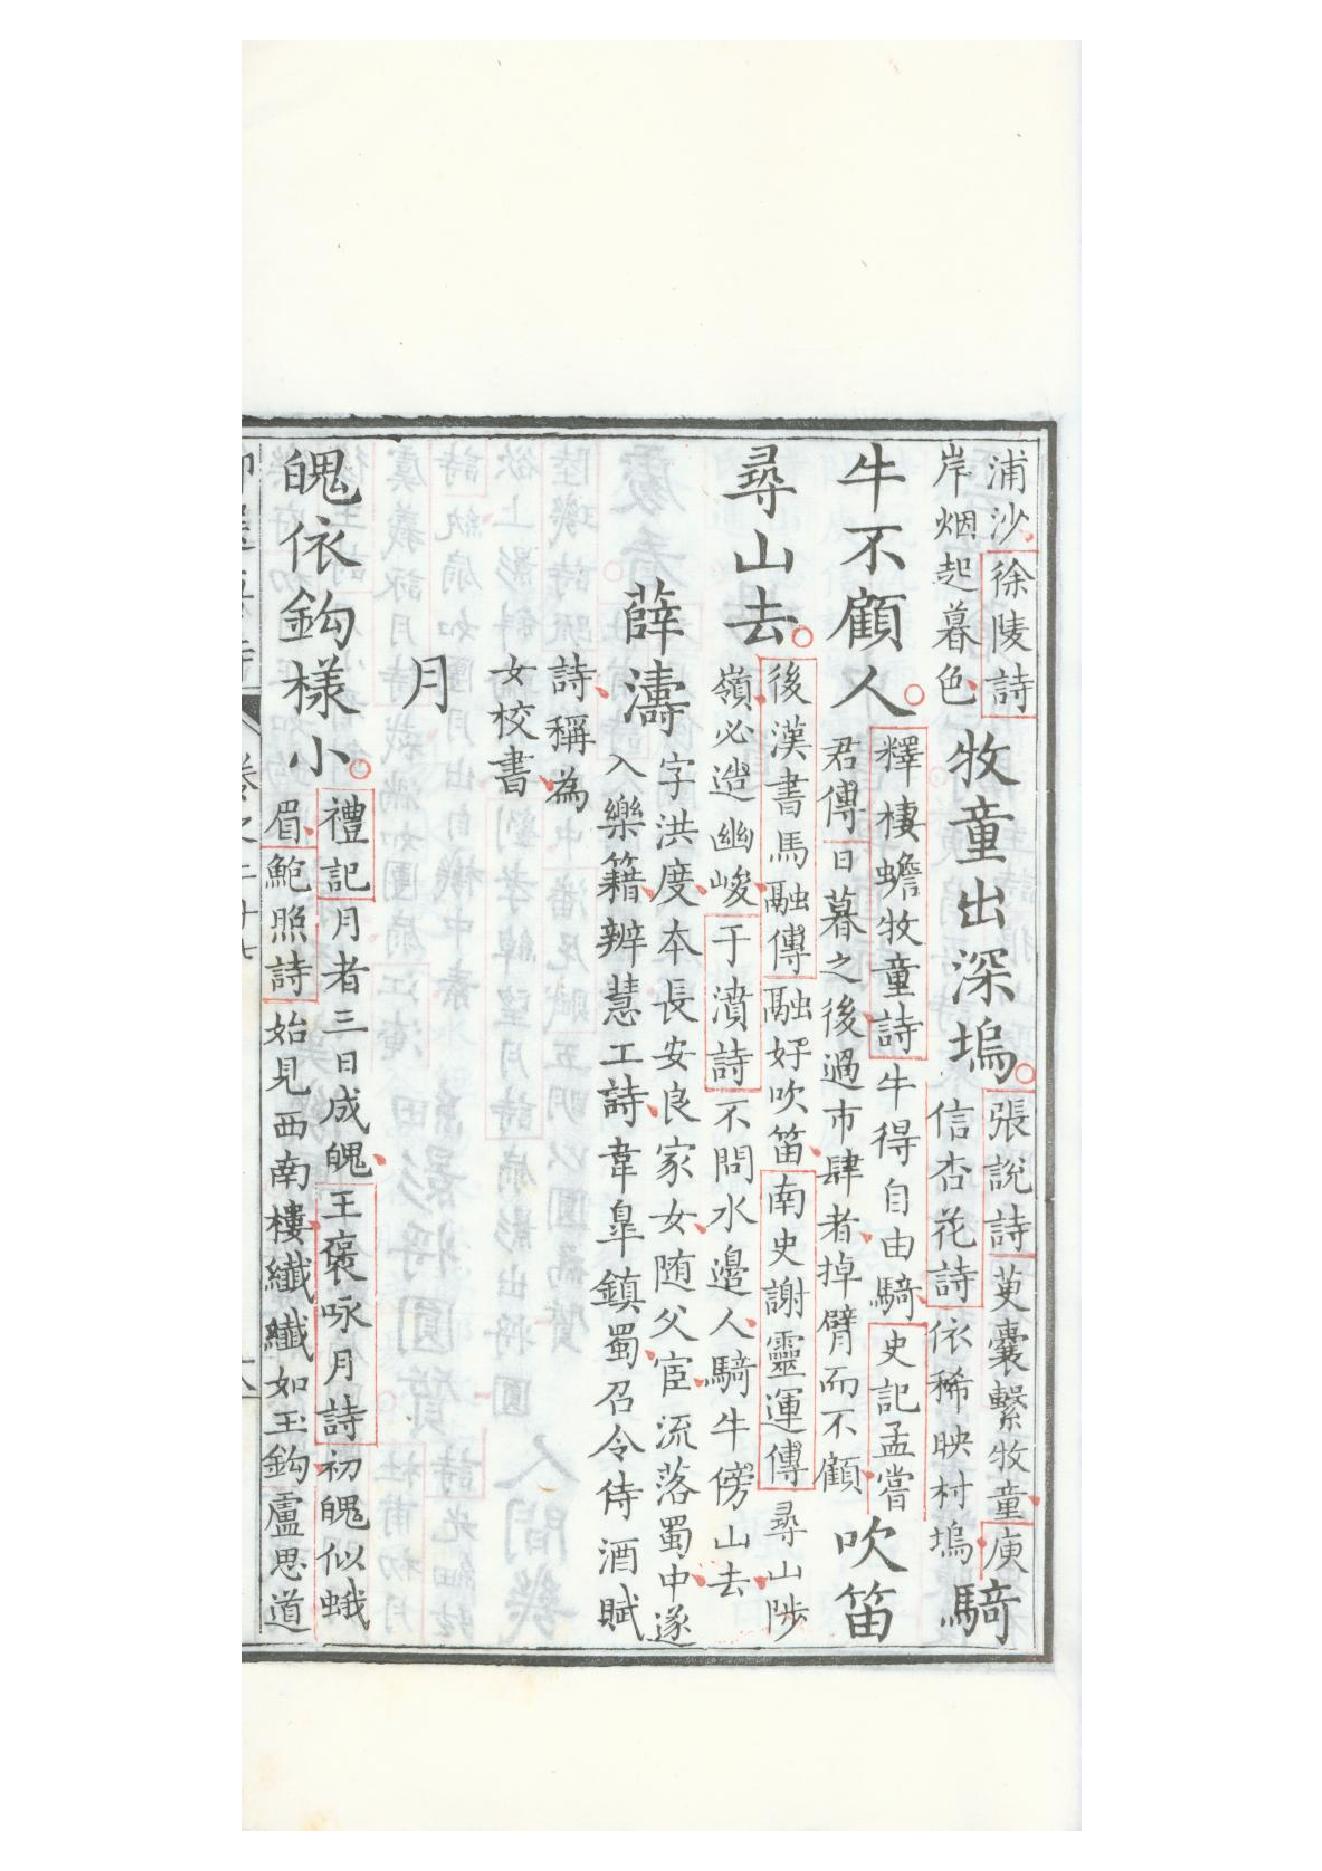 浦沙徐陵詩
岸烟起暮色
牧童出深塢
張說詩茰囊繫牧童庾
信杏花詩依稀映村塢
騎
牛不顧人
釋棲蟾牧童詩牛得自由騎史記孟嘗
君傳日暮之後過市肆者掉臂而不顧
吹笛
尋山去
後漢書馬融傳融好吹笛南史謝靈運傳尋山陟
嶺必造幽峻于濆詩不問水邊人騎牛傍山去
薛濤
字洪度本長安良家女随父宦流落蜀中遂
入樂籍辨慧工詩韋皐鎮蜀召令侍酒賦
詩稱為
女校書
月
魄依鈎樣小
禮記月者三日成魄王褒咏月詩初魄似蛾
眉鮑照詩始見西南樓纖纖如玉鈎盧思道